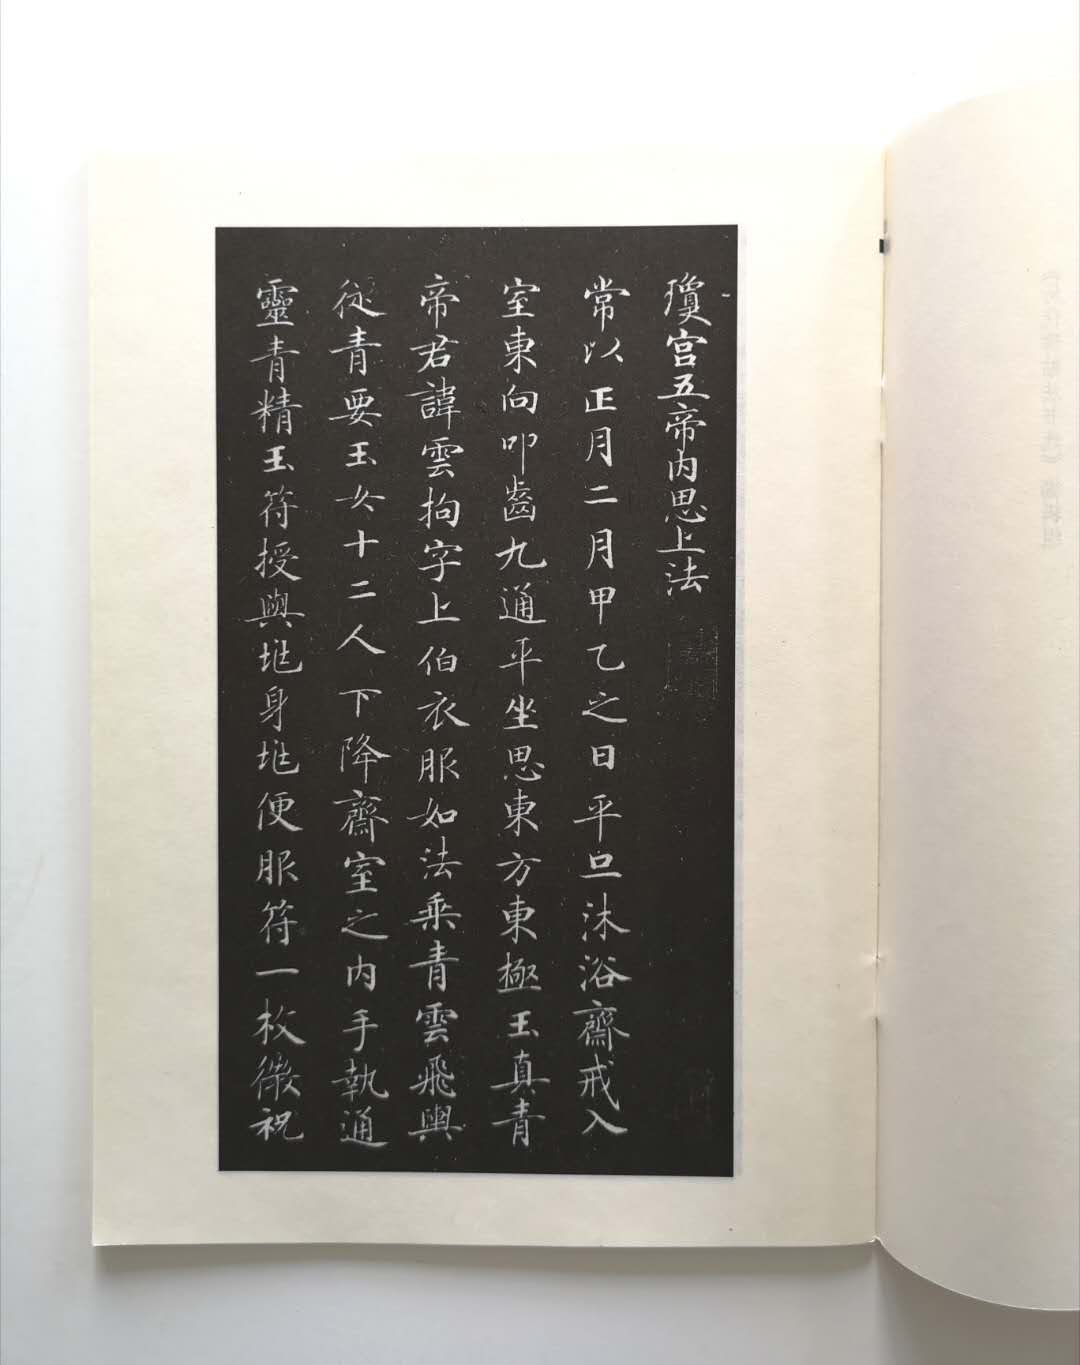 瓊宮五帝内思上法
常以正月二月甲乙之日平旦沐浴齋戒入
室東向叩齒九通平坐思東方東極玉真青
帝君諱雲拘字上伯衣服如法乗青雲飛輿
從青要玉女十二人下降齋室之内手執通
靈青精玉符授與兆身兆便服符一枚微祝